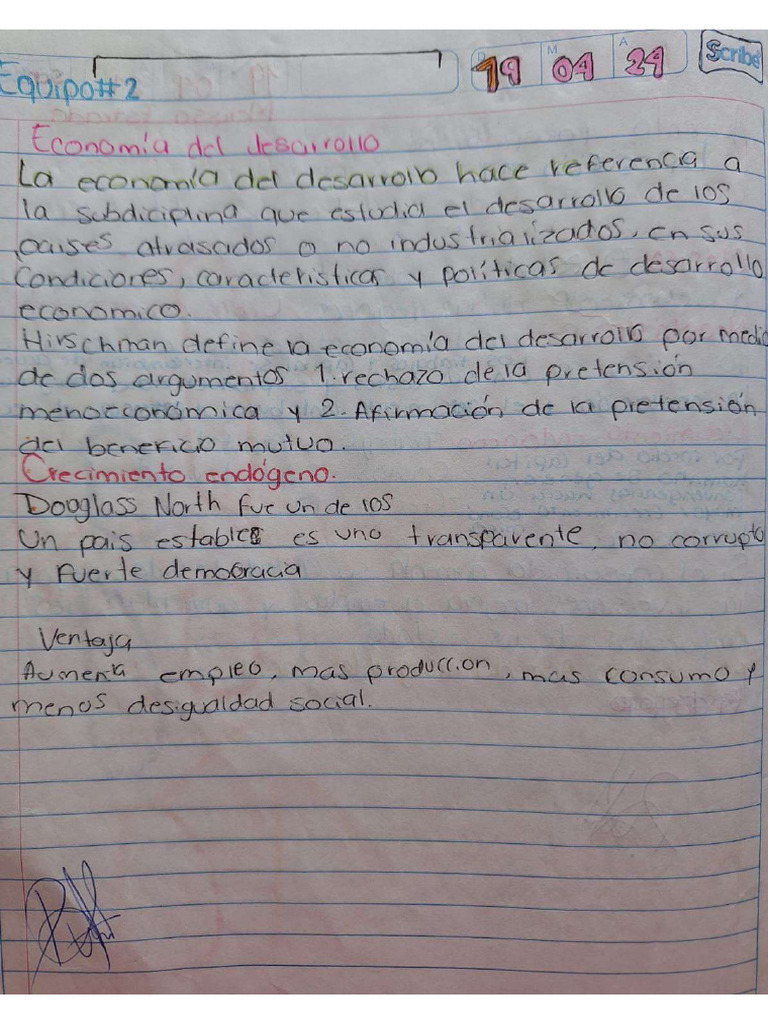 Equipo#2
D M A
19 04 24
Scribe
Economía del desarrollo
La economía del desarrollo hace referencia a
la subdiciplina que estudia el desarrollo de los
paises atrasados o no industrializados, en sus
condiciones, caracteristicas y políticas de desarrollo
economico.
Hirschman define la economía del desarrollo por medio
de dos argumentos 1. rechazo de la pretensión
menoeconómica y 2. Afirmación de la pretensión
del beneficio mutuo.
Crecimiento endógeno.
Dooglass North fue un de los
Un pais estable es uno transparente, no corrupto
y fuerte democracia
Ventaja
Aumenta empleo, mas produccion, mas consumo y
menos desigualdad social.